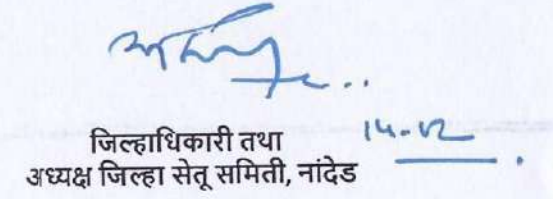 जिल्हाधिकारी तथा
अध्यक्ष जिल्हा सेतू समिती, नांदेड